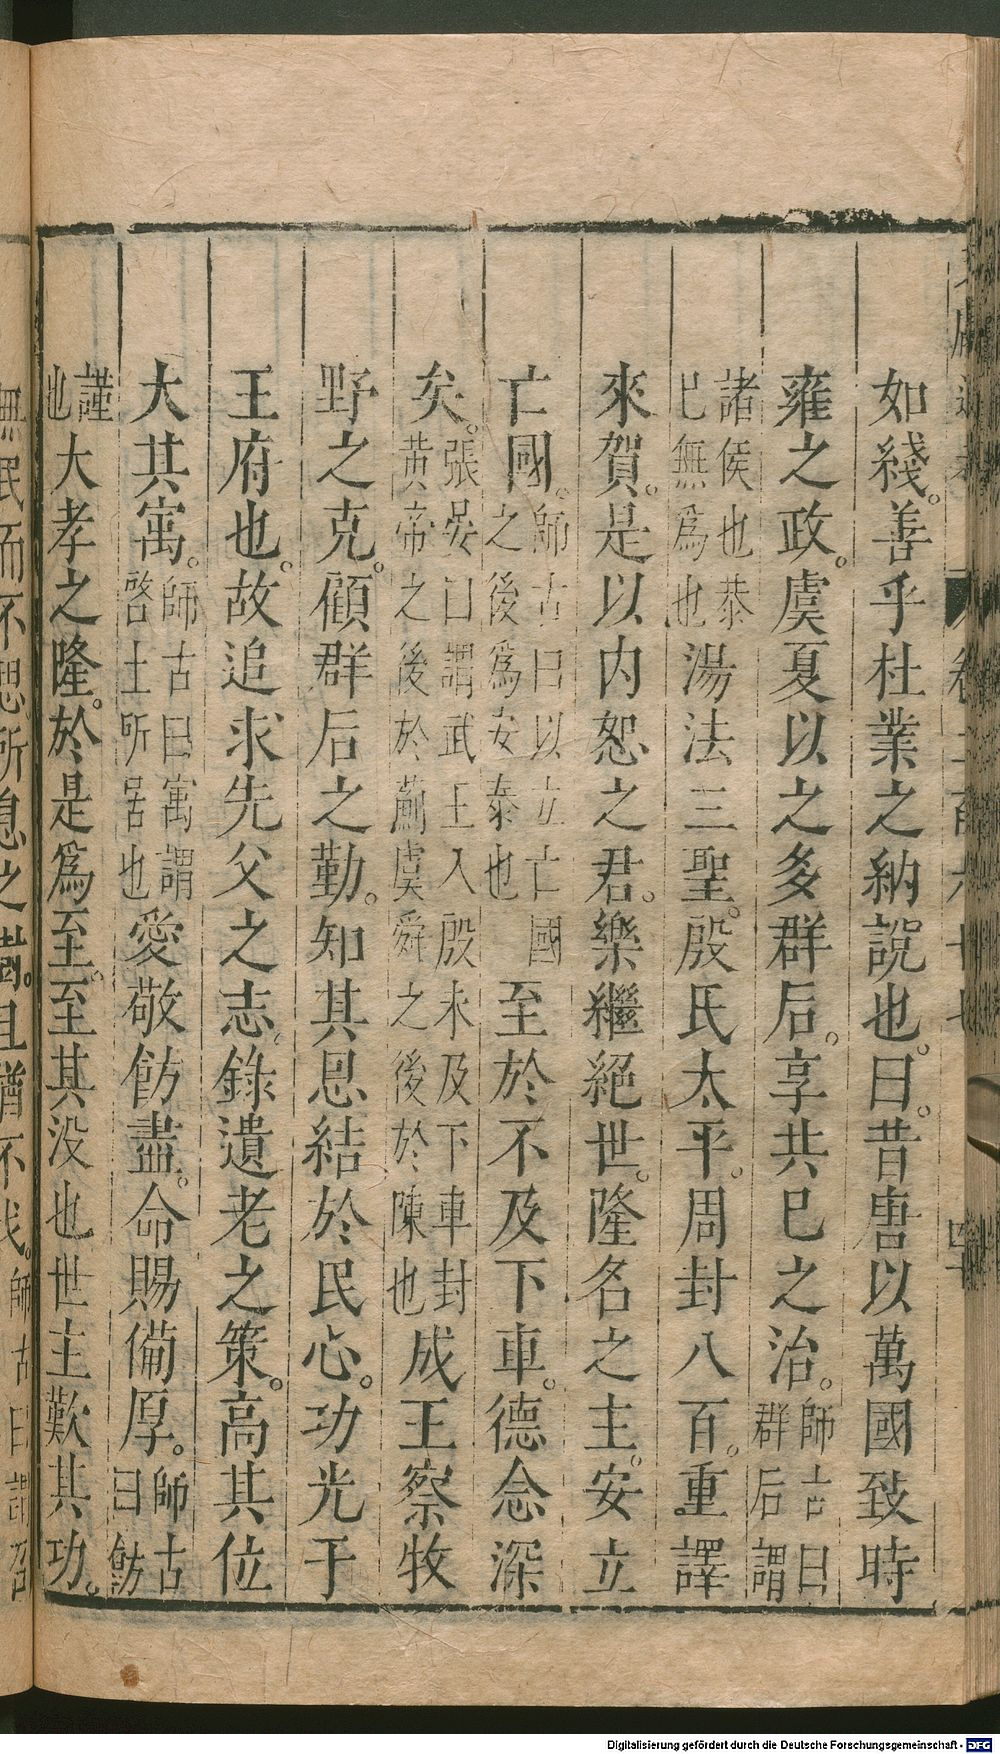 如綫。善乎杜業之納說也。曰。昔唐以萬國致時
雍之政。虞夏以之多群后。享共已之治。師古曰群后謂
諸侯也恭已無爲也湯法三聖。殷氏太平。周封八百。重譯
來賀。是以内恕之君。樂繼絕世。隆名之主。安立
亡國。師古曰以立亡國之後爲安泰也至於不及下車。德念深
矣。張晏曰謂武王入殷未及下車封黃帝之後於薊虞舜之後於陳也成王察牧
野之克。顧群后之勤。知其恩結於民心。功光于
王府也。故追求先父之志。錄遺老之策。高其位
大其寓。師古曰寓謂啓土所居也愛敬飭盡。命賜備厚。師古曰飭
謹也大孝之隆。於是爲至。至其没也世主歎其功。
無民而不思。所息之樹。且猶不伐。師古曰謂召
Digitalisierung gefördert durch die Deutsche Forschungsgemeinschaft - DFG